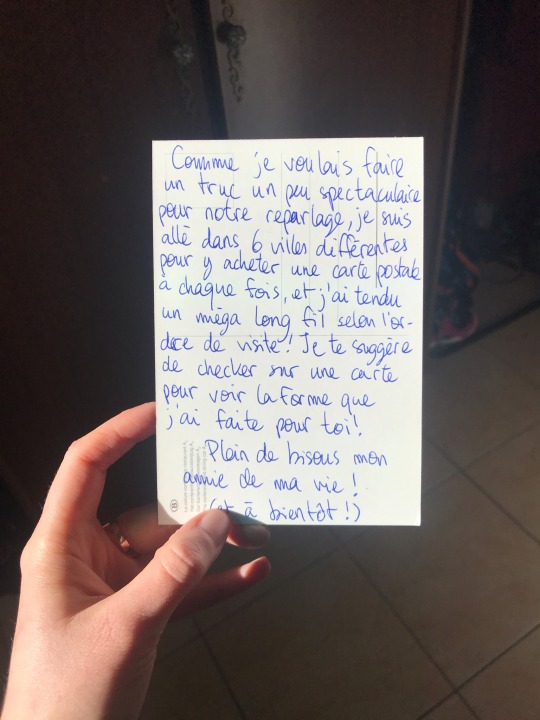 Comme je voulais faire
un truc un peu spectaculaire
pour notre reparlage, je suis
allé dans 6 villes différentes
pour y acheter une carte postale
à chaque fois, et j'ai tendu
un méga long fil selon l'or-
dre de visite! Je te suggère
de checker sur une carte
pour voir la forme que
j'ai faite pour toi!
Plein de bisous mon
amie de ma vie!
(et à bientôt!)